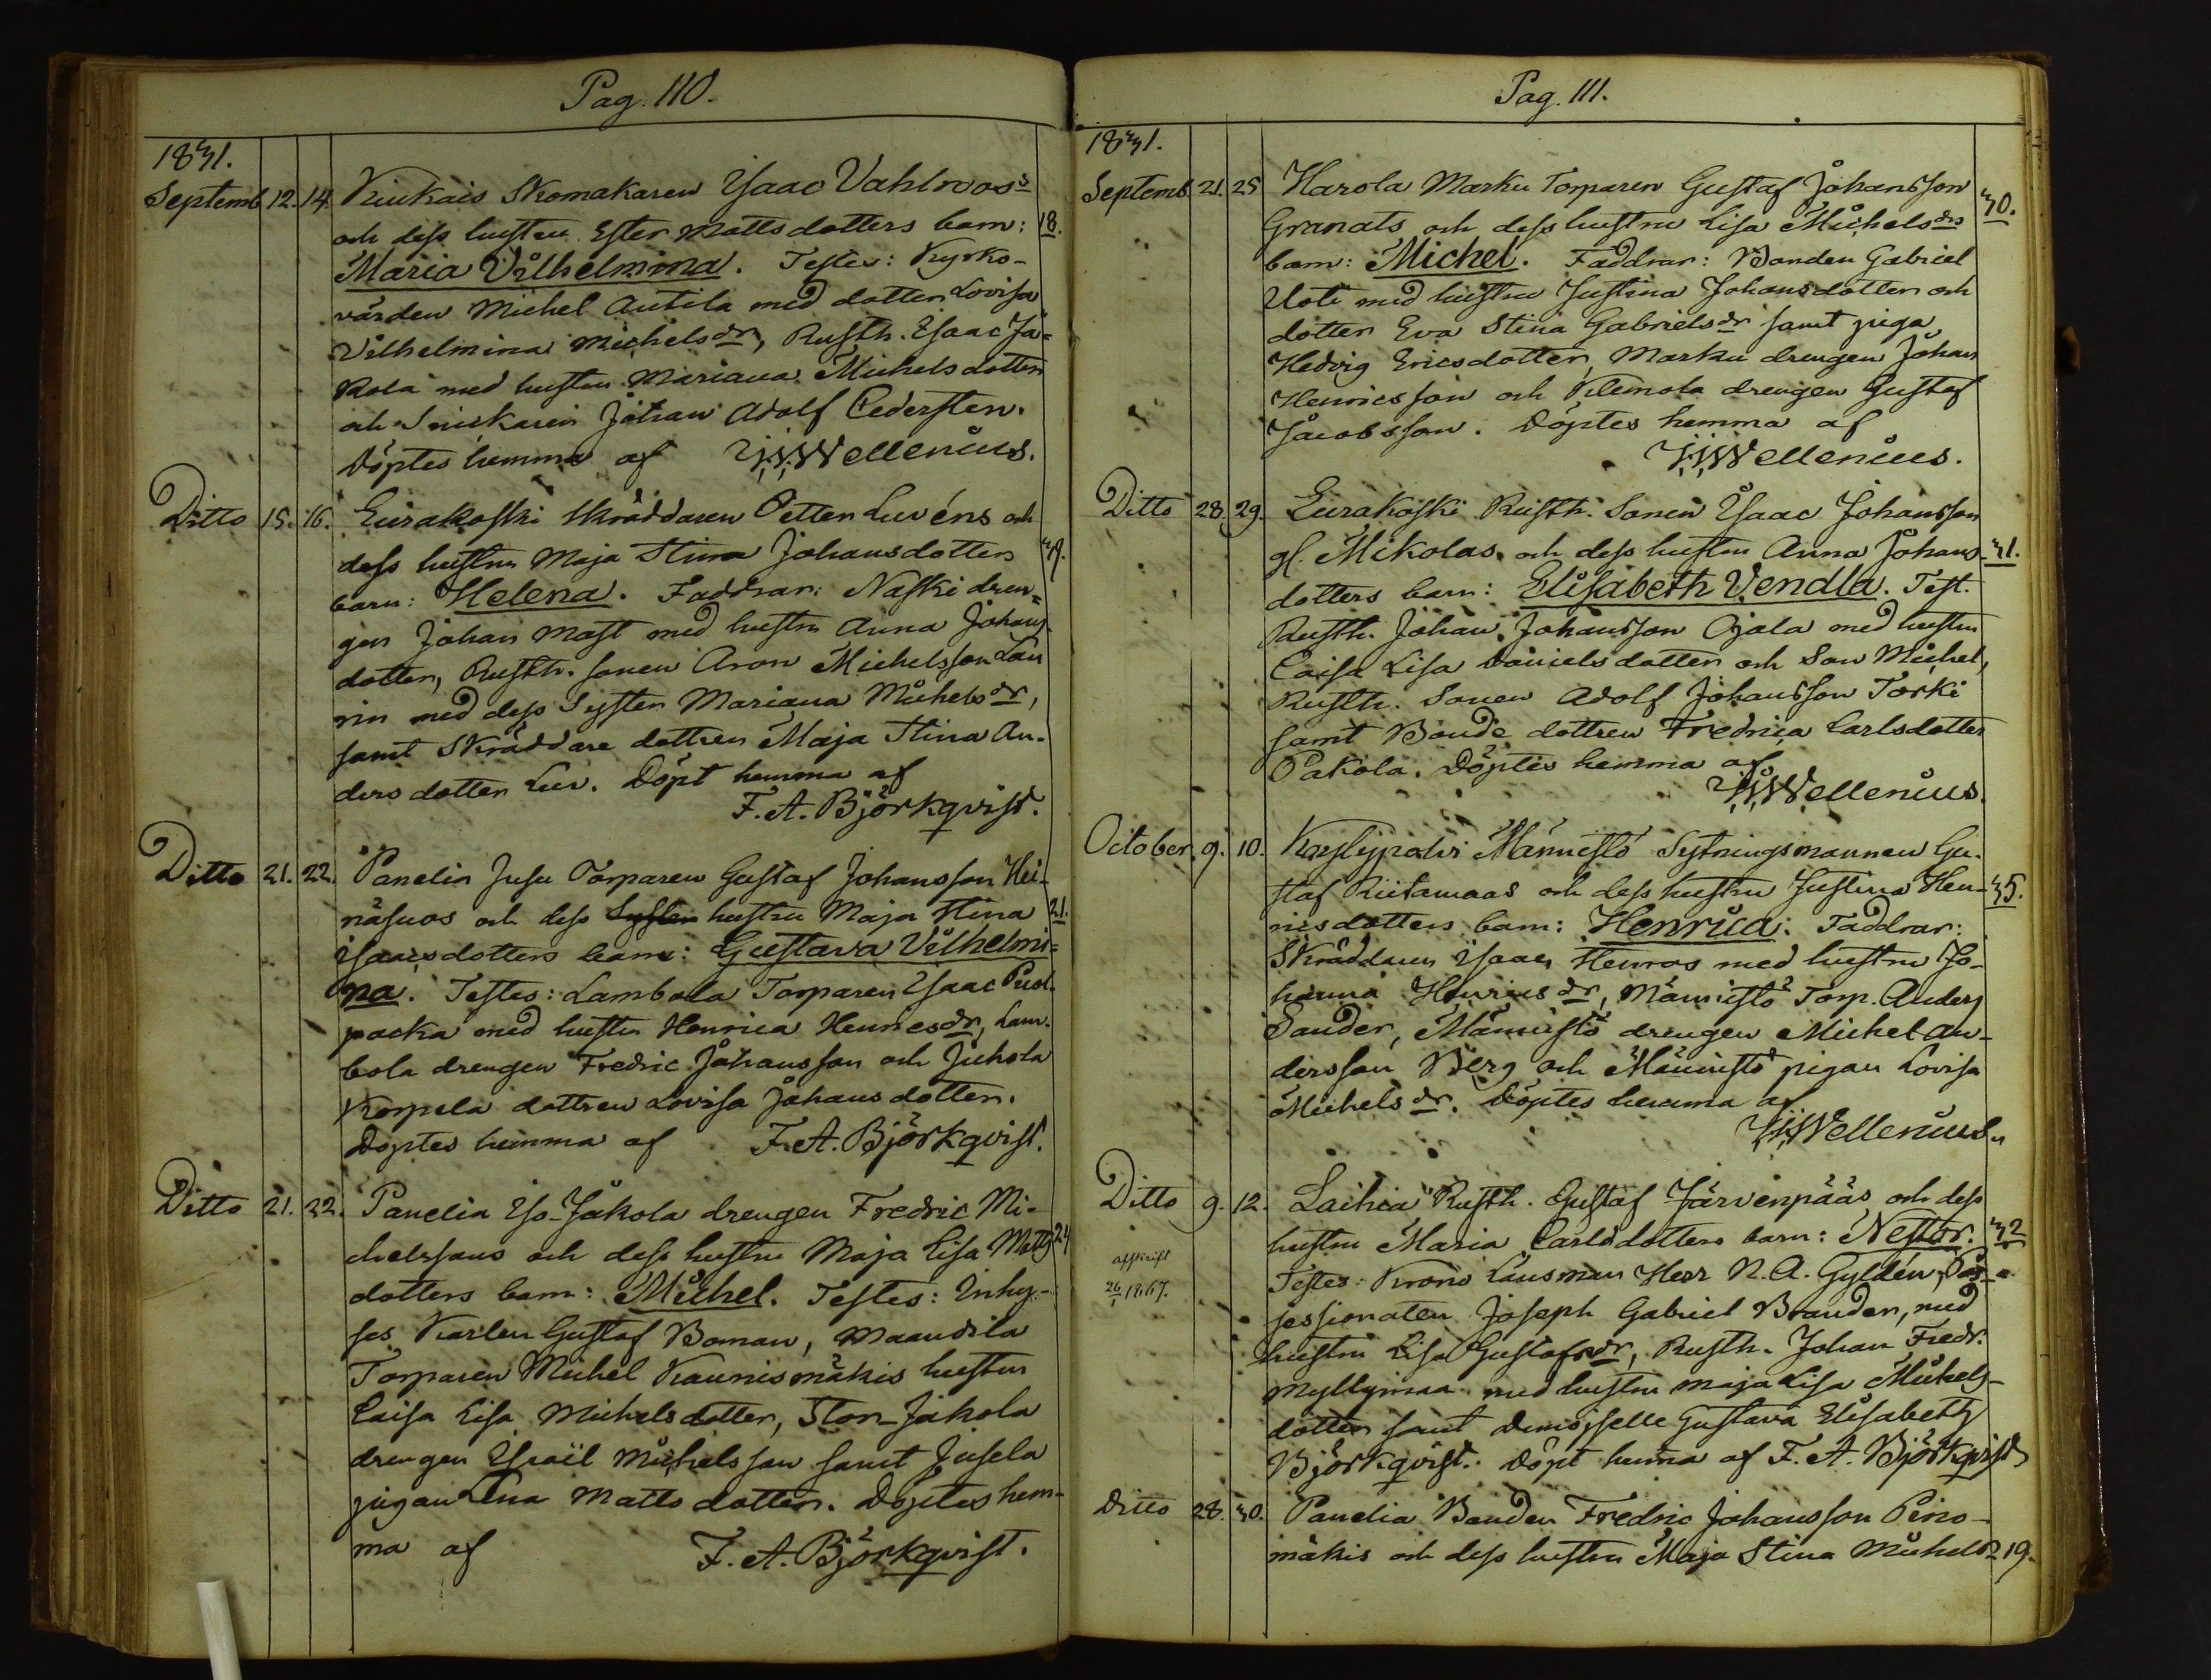 Pag. 110.
1831.
Septemb. 12. 14. Kiukais Skomakaren Isaac Vahlroos's
och dess hustru Ester Mattsdotters barn: 18.
Maria Vilhelmina. Testes: Kyrko-
värden Michel Antila med dotter Lovisa
Vilhelmina Michelsdr, Rusth. Isaac Ja-
kola med hustru Mariana Michelsdotter
och Snickaren Johan Adolf Cedersten.
Döptes hemma af J.W.Wellenius.
Ditto 15. 16. Eurakoski Skräddaren Petter Luréns och
dess hustru Maja Stina Johansdotters
barn: Helena. Faddrar: Naski dren-
gen Johan Mast med hustru Anna Johans
dotter, Rusth. sonen Aron Michelsson Lau
rin med dess Syster Mariana Michelsdr,
samt Skräddare dottren Maja Stina An-
ders dotter Lur. Döpt hemma af
F. A. Björkqvist.
Ditto 21. 22. Panelia Jusu Torparen Gustaf Johansson Hei-
näsuos och dess hustru Maja Stina 21.
Isaacsdotters barn: Gustava Vilhelmi-
na. Testes: Lambola Torparen Isaac Puol-
packa med hustru Henrica Henricsdr, Lam-
bola drengen Fredric Johansson och Juhola
Korpela dottren Lovisa Johansdotter.
Döptes hemma af F. A. Björkqvist.
Ditto 21. 22. Panelia Iso-Jakola drengen Fredric Mi-
chelssons och dess hustru Maja Lisa Matts 24
dotters barn: Michel. Testes: Inhy-
ses Karlen Gustaf Boman, Maandila
Torparen Michel Kaunismäkis hustru
Caisa Lisa Michelsdotter, Stor-Jakola
drengen Israël Michelsson samt Jusela
pigan Lena Mattsdotter. Döptes hem-
ma af F. A. Björkqvist.
Pag. 111.
1831.
Septemb. 21. 25 Harola Marku Torparen Gustaf Johansson
Granats och dess hustru Lisa Michelsdrs 30.
barn: Michel. Faddrar: Bonden Gabriel
Uoti med hustru Justina Johansdotter och
dotter Eva Stina Gabrielsdr samt piga
Hedvig Ericsdotter, Marku drengen Johan
Henricsson och Klemola drengen Gustaf
Jacobsson. Döptes hemma af
J.W.Wellenius.
Ditto 28. 29. Eurakoski Rusth. Sonen Isaac Johansson
gl. Mikolas och dess hustru Anna Johans- 31.
dotters barn: Elisabeth Vendla. Test.
Rusth. Johan Johansson Ojala med hustru
Caisa Lisa Danielsdotter och Son Michel,
Rusth. Sonen Adolf Johansson Torki
samt Bonde dottren Fredrica Carlsdotter
Pakola. Döptes hemma af
J.W.Wellenius.
October 9. 10. Köylypolvi Männistö Sytningsmannen Gu-
staf Riitamaas och dess hustru Justina Hen- 35.
ricsdotters barn: Henrica. Faddrar:
Skräddaren Isaac Henros med hustru Jo-
hanna Henricsdr, Männistö Torp. Anders
Sander, Männistö drengen Michel An-
dersson Berg och Männistö pigan Lovisa
Michelsdr. Döptes hemma af
J.W.Wellenius.
Ditto 9. 12. Laihia Rusth. Gustaf Järvenpääs och dess
hustru Maria Carlsdotters barn: Nestor. 32
afskrift
26/1 1867.
Testes: Krono Länsman Herr N. A. Gyldén,
sessionaten Joseph Gabriel Brander, med
hustru Lisa Gustafsdr, Rusth. Johan Fredr.
Myllymaa med hustru Maja Lisa Michels-
dotter samt Demoiselle Gustava Elisabeth
Björkqvist. Döpt hemma af F. A. Björkqvist
Ditto 28. 30. Panelia Bonden Fredric Johansson Piso-
mäkis och dess hustru Maja Stina Michels- 19.